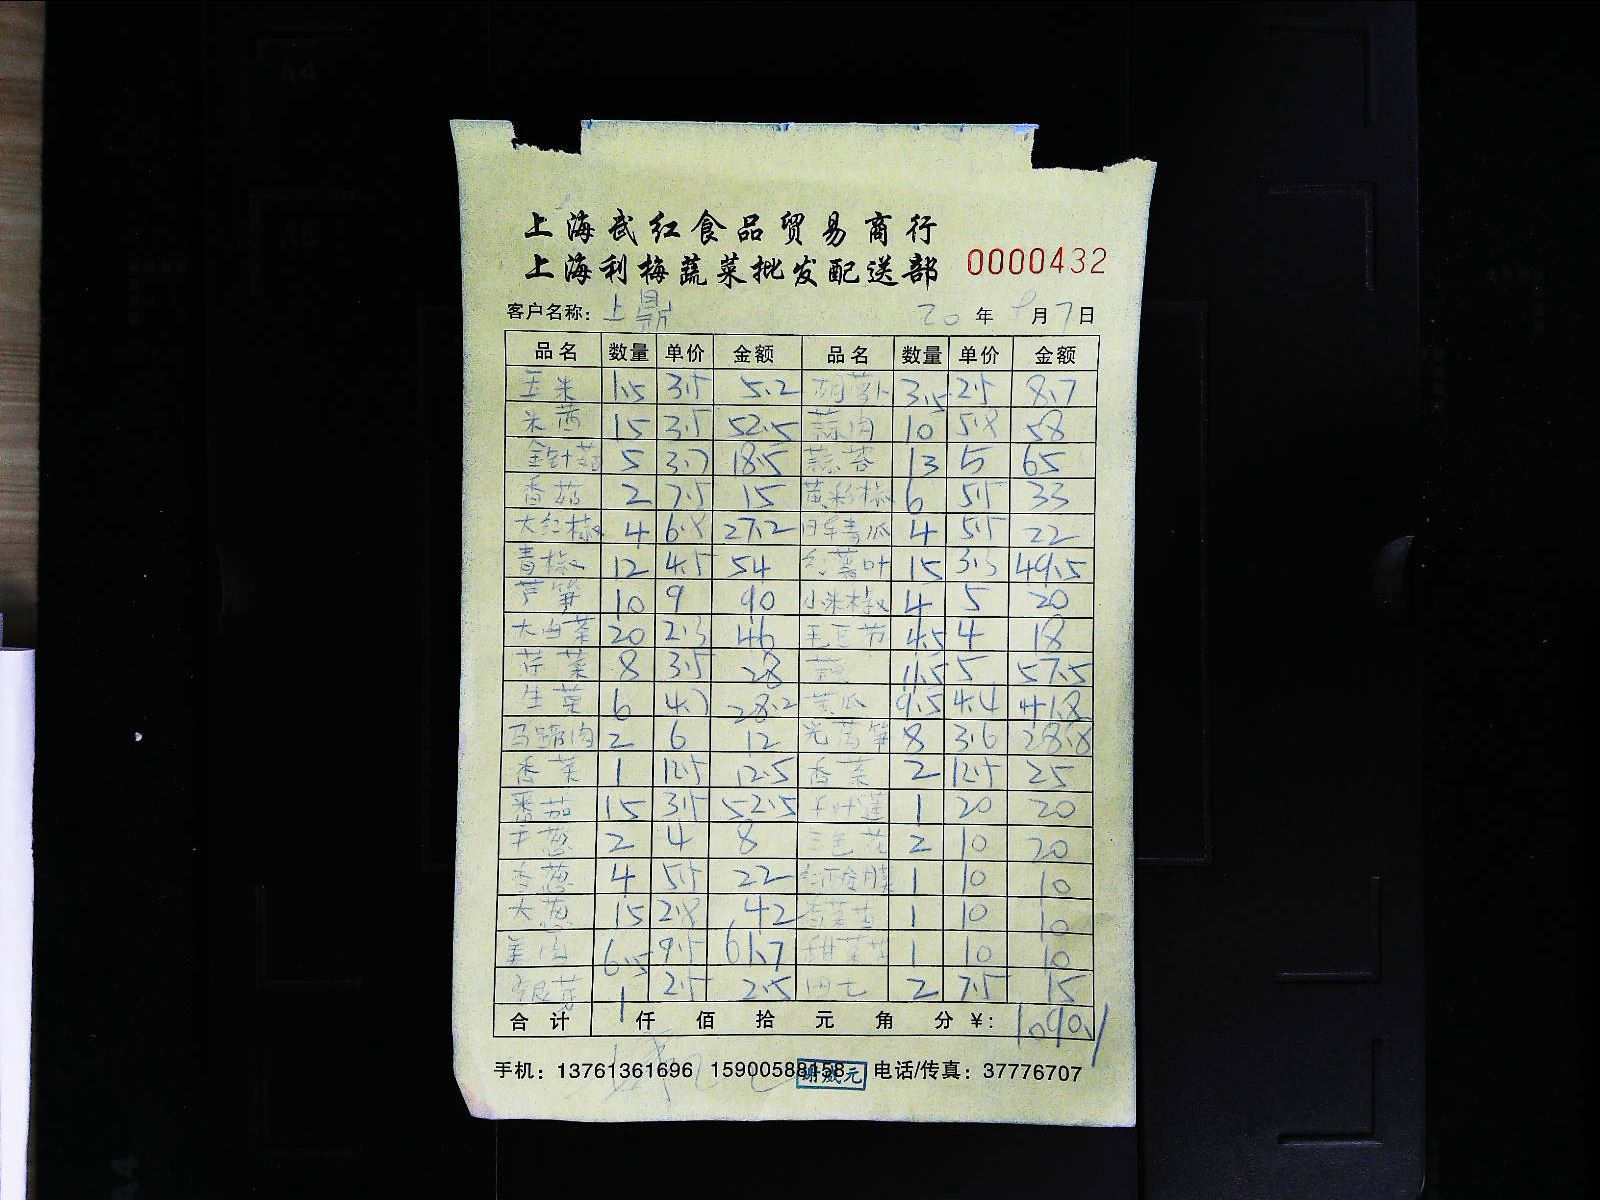 上海武红食品贸易商行
上海利梅蔬菜批发配送部 0000432
客户名称: 上鼎 20 年 9 月 7 日
品名 数量 单价 金额 品名 数量 单价 金额
玉米 1.5 3.5 5.2 胡萝卜 3.5 2.5 8.7
米茜 15 3.5 52.5 蒜肉 10 5.8 58
金针菇 5 3.7 18.5 蒜苔 13 5 65
香菇 2 7.5 15 黄彩椒 6 5.5 33
大红椒 4 6.8 27.2 日本青瓜 4 5.5 22
青椒 12 4.5 54 红薯叶 15 3.3 49.5
芦笋 10 9 90 小米椒 4 5 20
大白菜 20 2.3 46 毛豆节 4.5 4 18
芹菜 8 3.5 28 11.5 5 57.5
生菜 6 4.7 28.2 黄瓜 9.5 4.4 41.8
马蹄肉 2 6 12 光莴笋 8 3.6 28.8
香菜 1 12.5 12.5 香菜 2 12.5 25
番茄 15 3.5 52.5 千叶莲 1 20 20
洋葱 2 4 8 三色花 2 10 20
香葱 4 5.5 22 1 10 10
大葱 15 2.8 42 香菜苗 1 10 10
姜肉 6.5 9.5 61.7 甜菜苗 1 10 10
银芽 1 2.5 2.5 2 7.5 15
合计 仟 佰 拾 元 角 分 ¥: 1090.1
手机: 13761361696 15900588158 电话/传真: 37776707